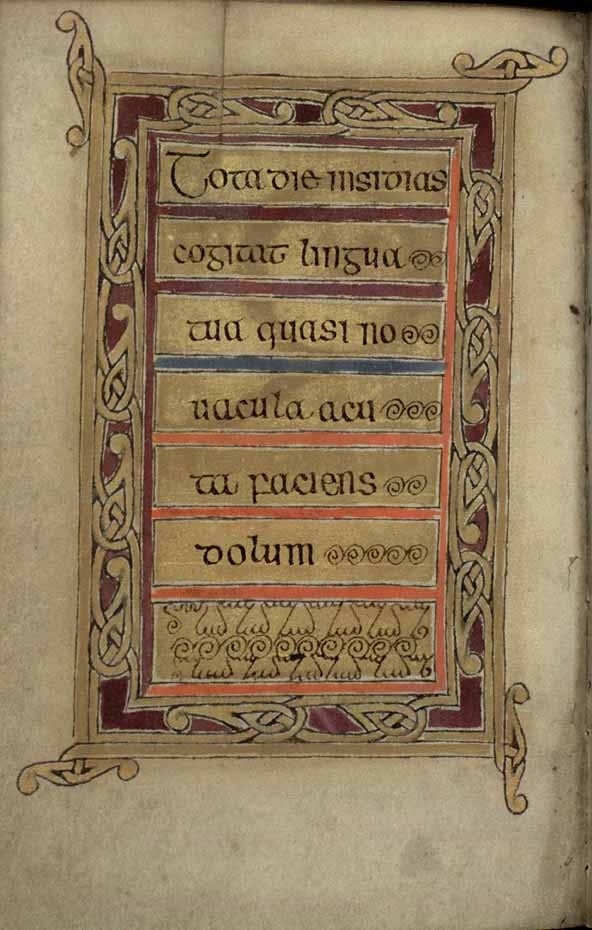 Tota die insidias
cogitat lingua
tua quasi no
uacula acu
ta faciens
dolum